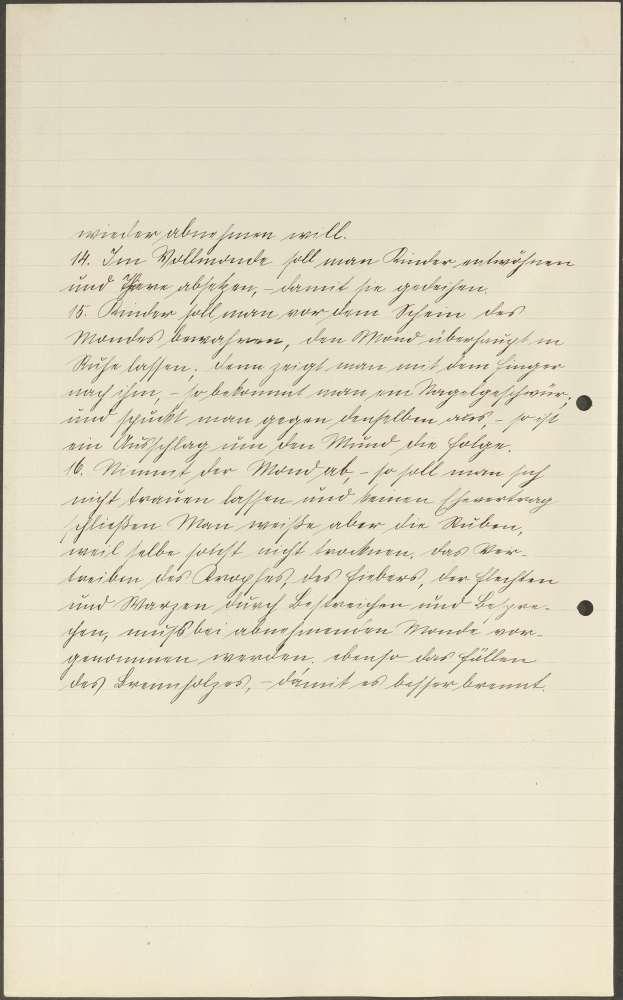 wieder abnehmen will.
14. Im Vollmonde soll man Kinder entwöhnen
und Thiere absetzen, – damit sie gedeihen.
15. Kinder soll man vor dem Schein des
Mondes bewahren, den Mond überhaupt in
Ruhe lassen; denn zeigt man mit dem Finger
nach ihm, – so bekommt man ein Nagelgeschwür;
und spuckt man gegen denselben aus, – so ist
ein Ausschlag um den Mund die Folge.
16. Nimmt der Mond ab, – so soll man sich
nicht trauen lassen und keinen Ehevertrag
schließen. Man weiße aber die Stuben,
weil selbe sonst nicht trocknen. Das Ver-
treiben des Kropfes, des Fiebers, der Flechten
und Warzen durch Bestreichen und Bespre-
chen, muß bei abnehmenden Monde vor-
genommen werden. ebenso das Fällen
des Brennholzes, – damit es besser brennt.